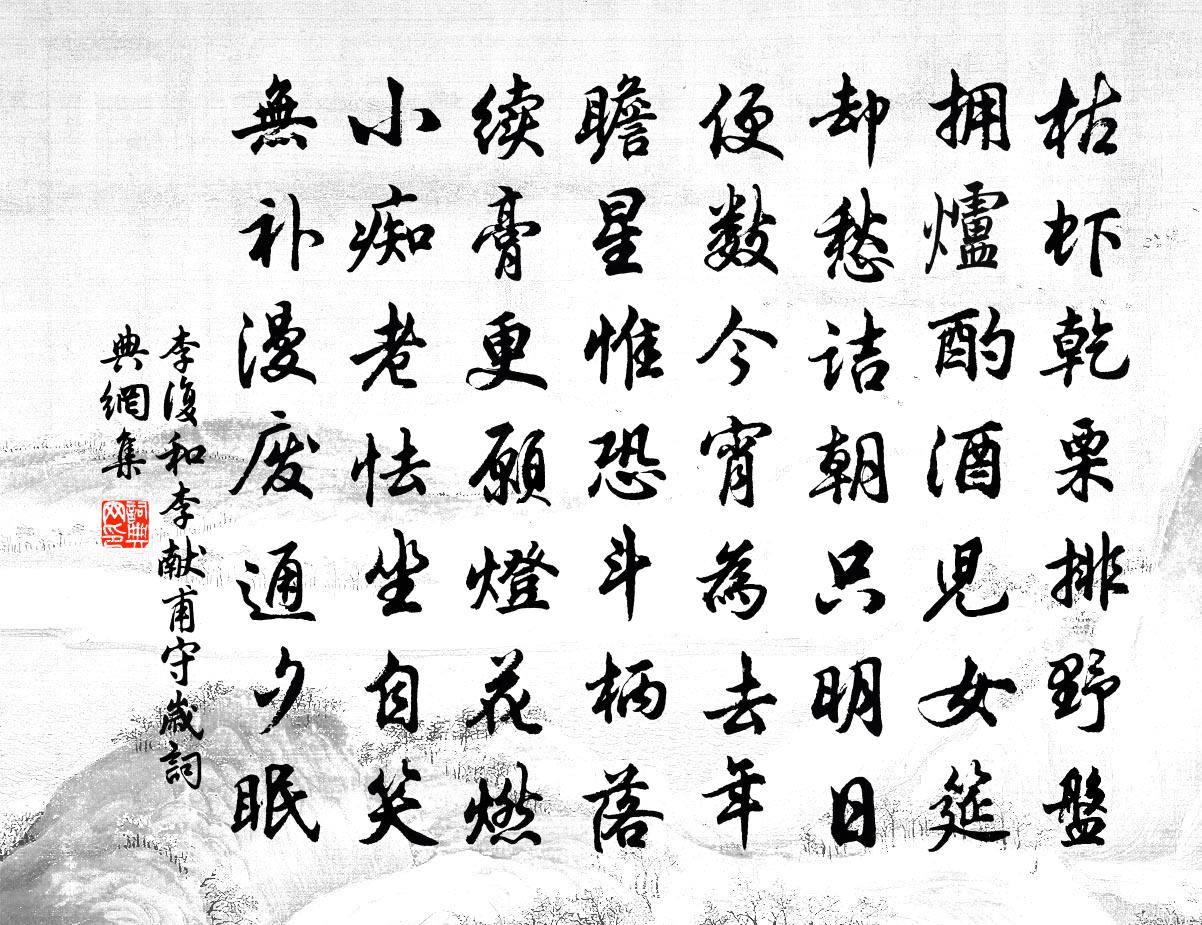 枯虾乾栗排野盤
拥爐酌酒児女筵
却愁詰朝只明日
便数今宵為去年
瞻星惟恐斗柄落
续膏更願燈花燃
小痴老怯坐自笑
無补漫废通夕眠
李復和李献甫守歳詞
典網集
詞典网印